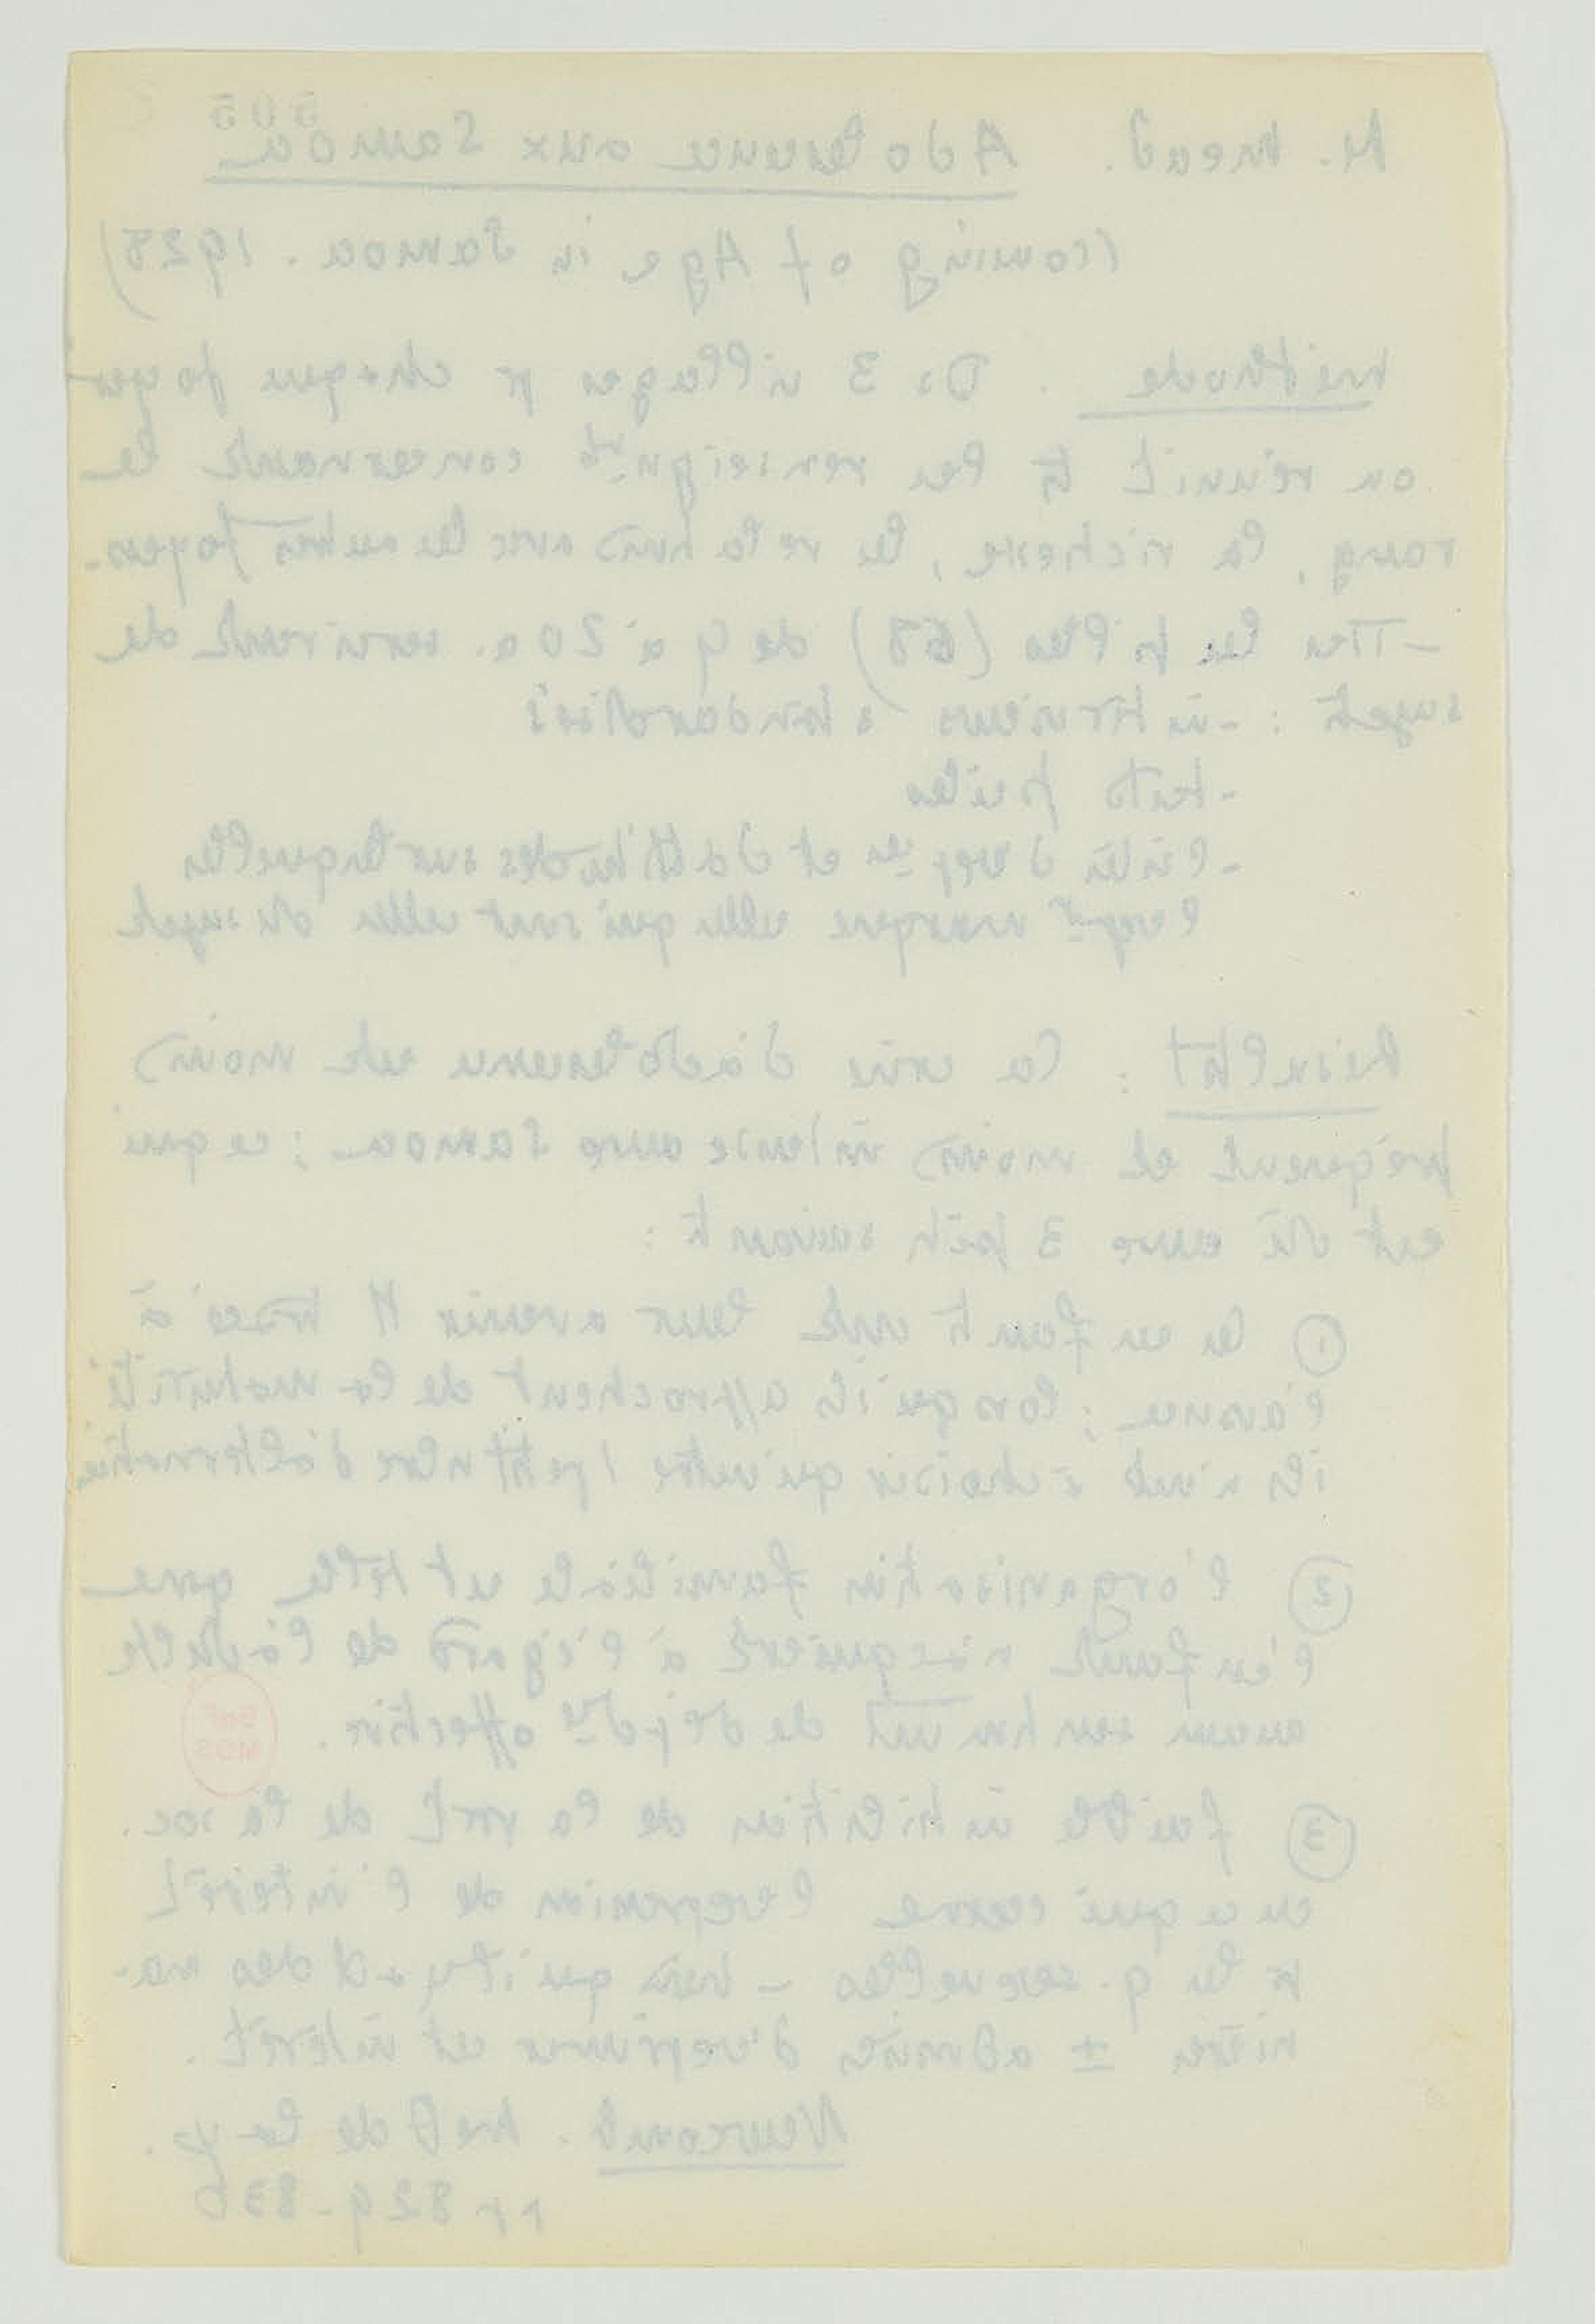 505
M. Mead. Adolescence aux Samoa
(Coming of Age in Samoa. 1928)
Méthode. Ds 3 villages pr chaque foyer
on réunit ts les renseignts concernant le
rang, la richesse, les relations avec les autres foyers.
- Ttes les filles (68) de 9 à 20 a. servirent de
sujets : - interviews standardisés
- tests faciles
- listes d' et d'attitudes sur lesquelles
marque celles qui sont celles du sujet
Résultat : la crise d'adolescence est moins
fréquente et moins intense aux Samoa ; ce qui
est dû aux 3 faits suivants :
① les enfants ont leur avenir tracé à
l'avance ; lorsqu'ils approchent de la maturité
ils n'ont à choisir qu'entre 1 petit nbre d'alternatives
② l'organisation familiale est telle que
l'enfant n'acquiert à l'égard de l'adulte
aucun sentiment de dépdce affective.
③ faible inhibition de la part de la soc.
en ce qui cerne l'expression de l'intérêt
pr les q. sexuelles - bien qu'il y ad des ma-
nières ± admises d'exprimer cet intérêt.
Newcomb. Man de la ψ.
pp 829-836
BnF
MSS